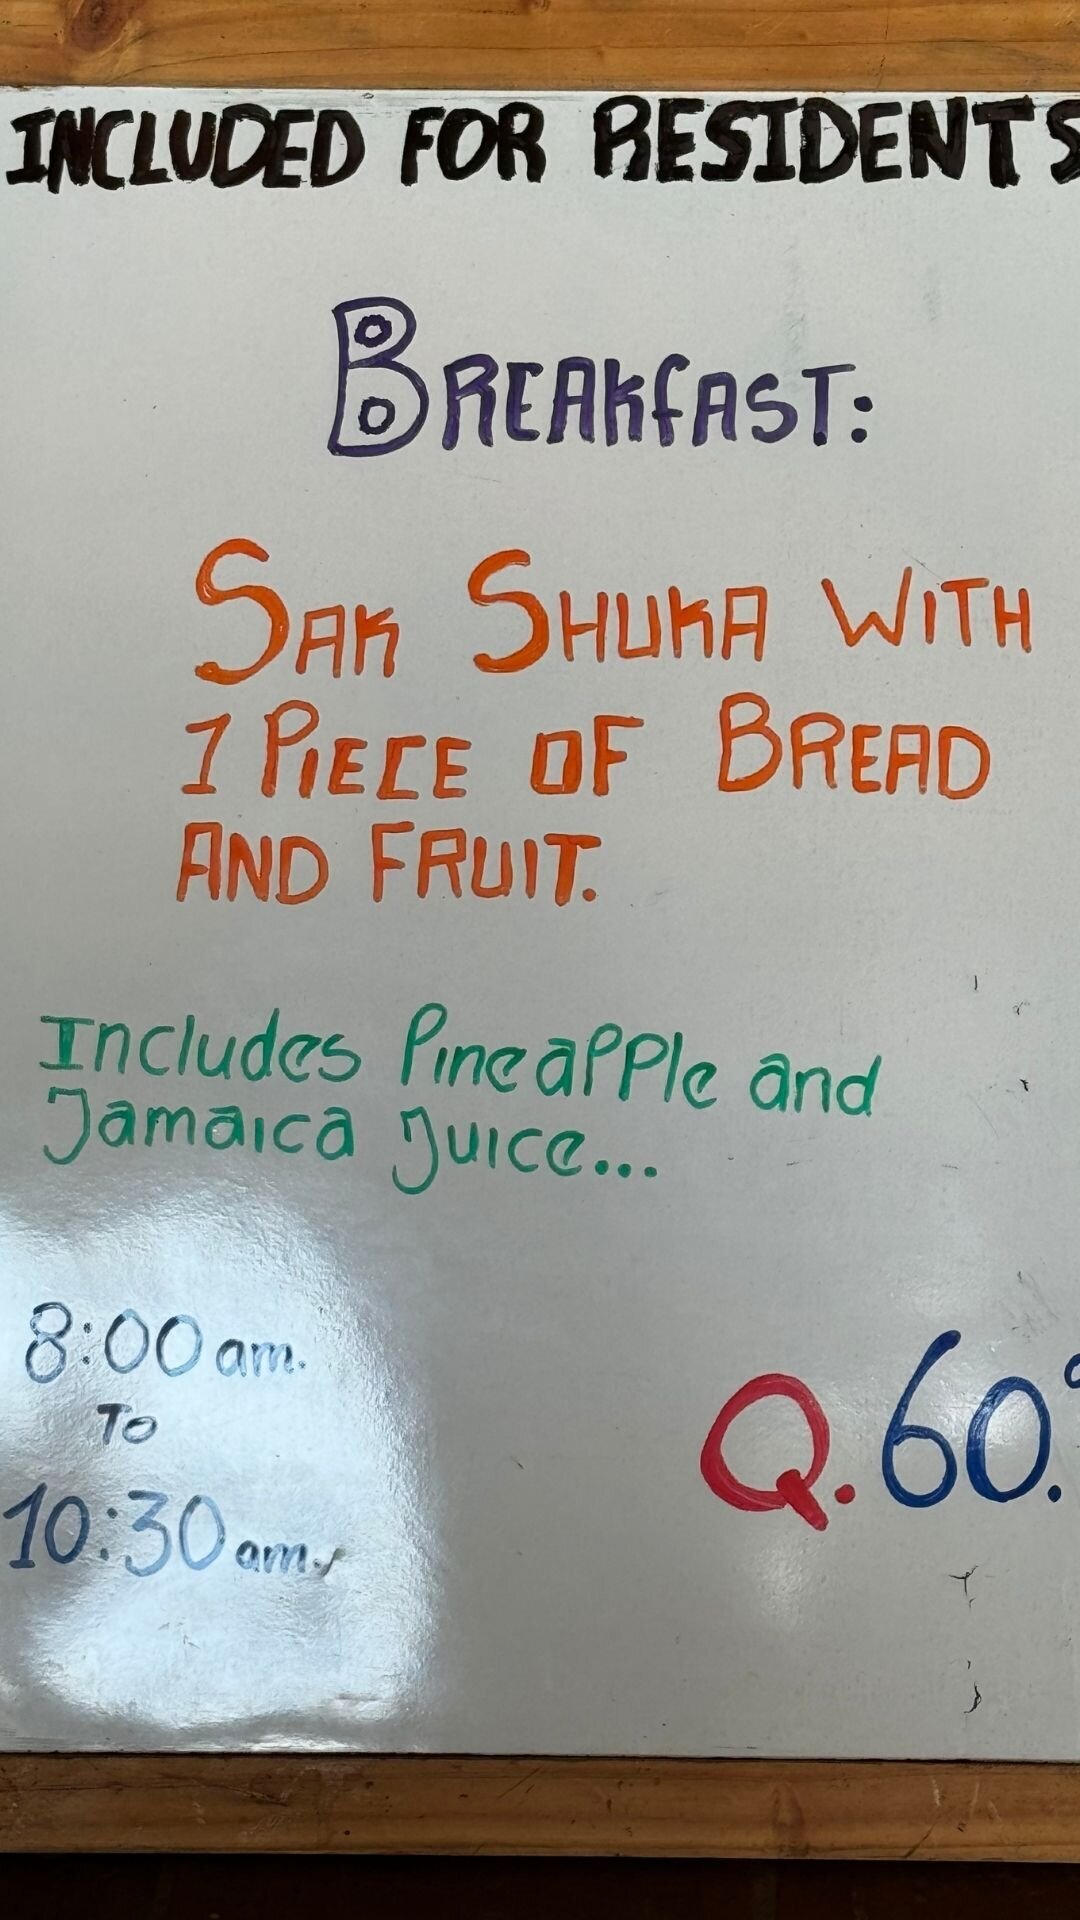 INCLUDED FOR RESIDENTS
BREAKfAST:
SAK SHUKA WITH
1 PIECE OF BREAD
AND FRUIT.
Includes PineaPPle and
Jamaica Juice...
8:00 am.
To
10:30 am.
Q.60.